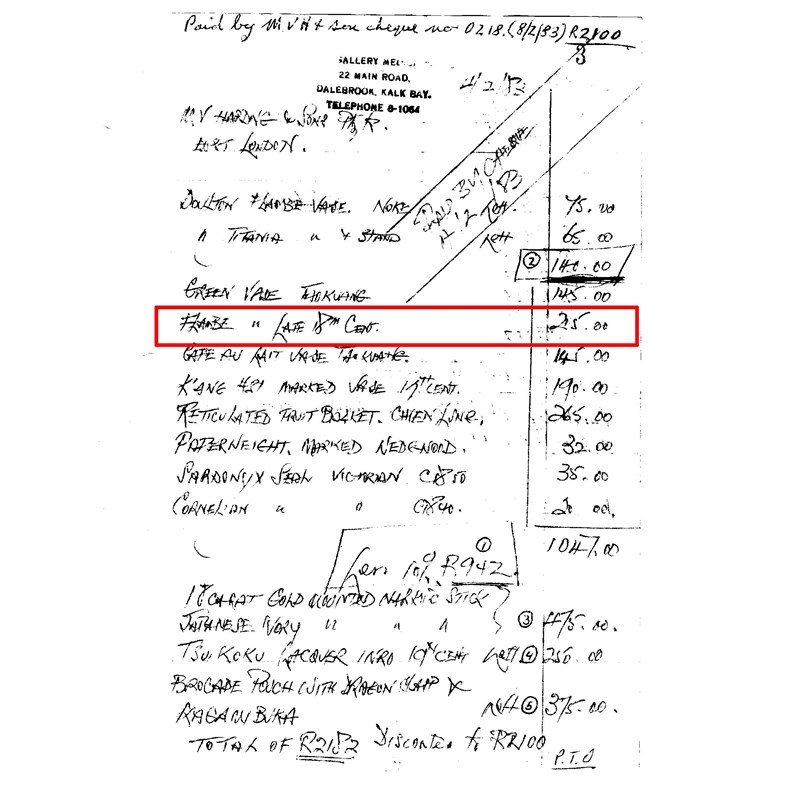 Paid by M.V.H & Son cheque no 0218. (8/2/83) R2100
3
GALLERY
22 MAIN ROAD,
DALEBROOK, KALK BAY.
TELEPHONE 8-1064
4/2/83
M.V HARING & Sons
EAST LONDON.
PAID BY CHEQUE
4/2/83
DOULTON FLAMBE VASE. NOKE 75.00
" TITANIA " & STAND Nett 65.00
② 140.00
GREEN VASE 145.00
FLAMBE " LATE 18TH CENT. 25.00
CAFE AU LAIT VASE 145.00
K'ANG HSI MARKED VASE 19TH CENT. 190.00
RETICULATED FRUIT BASKET. CHIEN LUNG. 265.00
PAPERWEIGHT. MARKED 32.00
SARDONYX SEAL VICTORIAN C1850 35.00
CORNELIAN " " C1840. 20 00.
1047.00
① Less 10% R942
18 CARAT GOLD MOUNTED STICK
JAPANESE IVORY " " " ③ 475.00.
LACQUER INRO 19TH CENT Nett ④ 250.00
BROCADE POUCH WITH DRAGON CLASP &
KAGAMIBUTA Nett ⑤ 375.00.
TOTAL OF R2182 to R2100
P.T.O